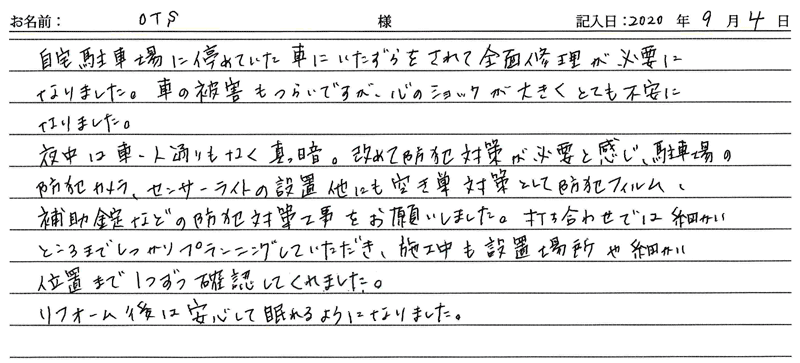 お名前： OTS 様 記入日：2020 年 9 月 4 日
自宅駐車場に停めていた車にいたずらをされて全面修理が必要に
なりました。車の被害もつらいですが、心のショックが大きくとても不安に
なりました。
夜中は車・人通りもなく真っ暗。改めて防犯対策が必要と感じ、駐車場の
防犯カメラ、センサーライトの設置他にも空き巣対策として防犯フィルム、
補助錠などの防犯対策工事をお願いしました。打ち合わせでは細かい
ところまでしっかりプランニングしていただき、施工中も設置場所や細かい
位置まで1つずつ確認してくれました。
リフォーム後は安心して眠れるようになりました。